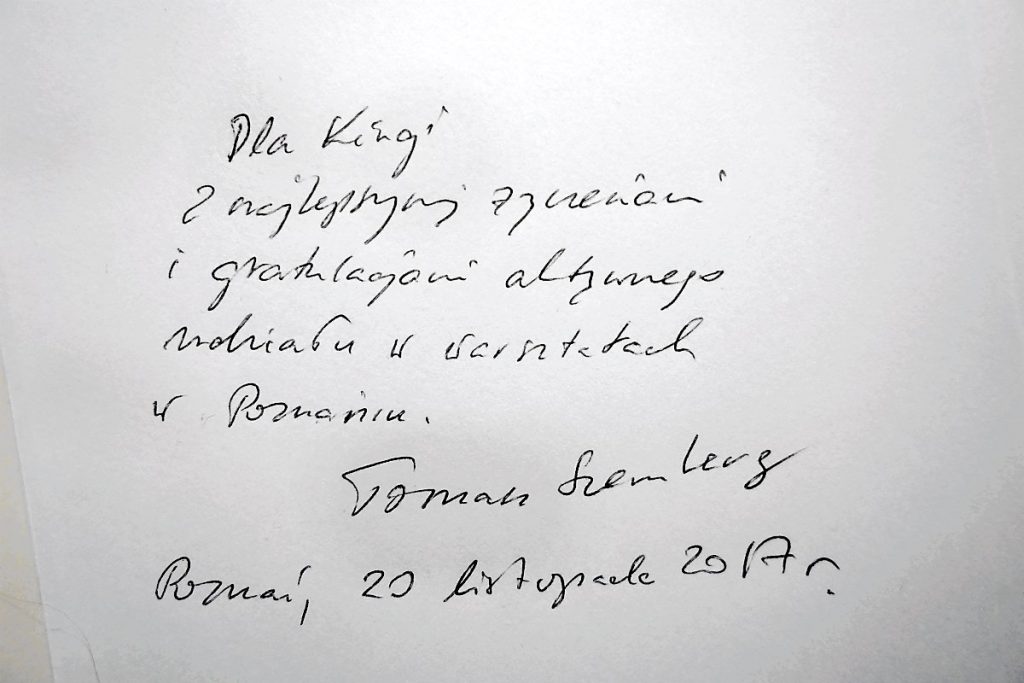 Dla Kingi
z najlepszymi życzeniami
i gratulacjami aktywnego
udziału w warsztatach
w Poznaniu.
Tomasz Szemberg
Poznań, 20 listopada 2017 r.